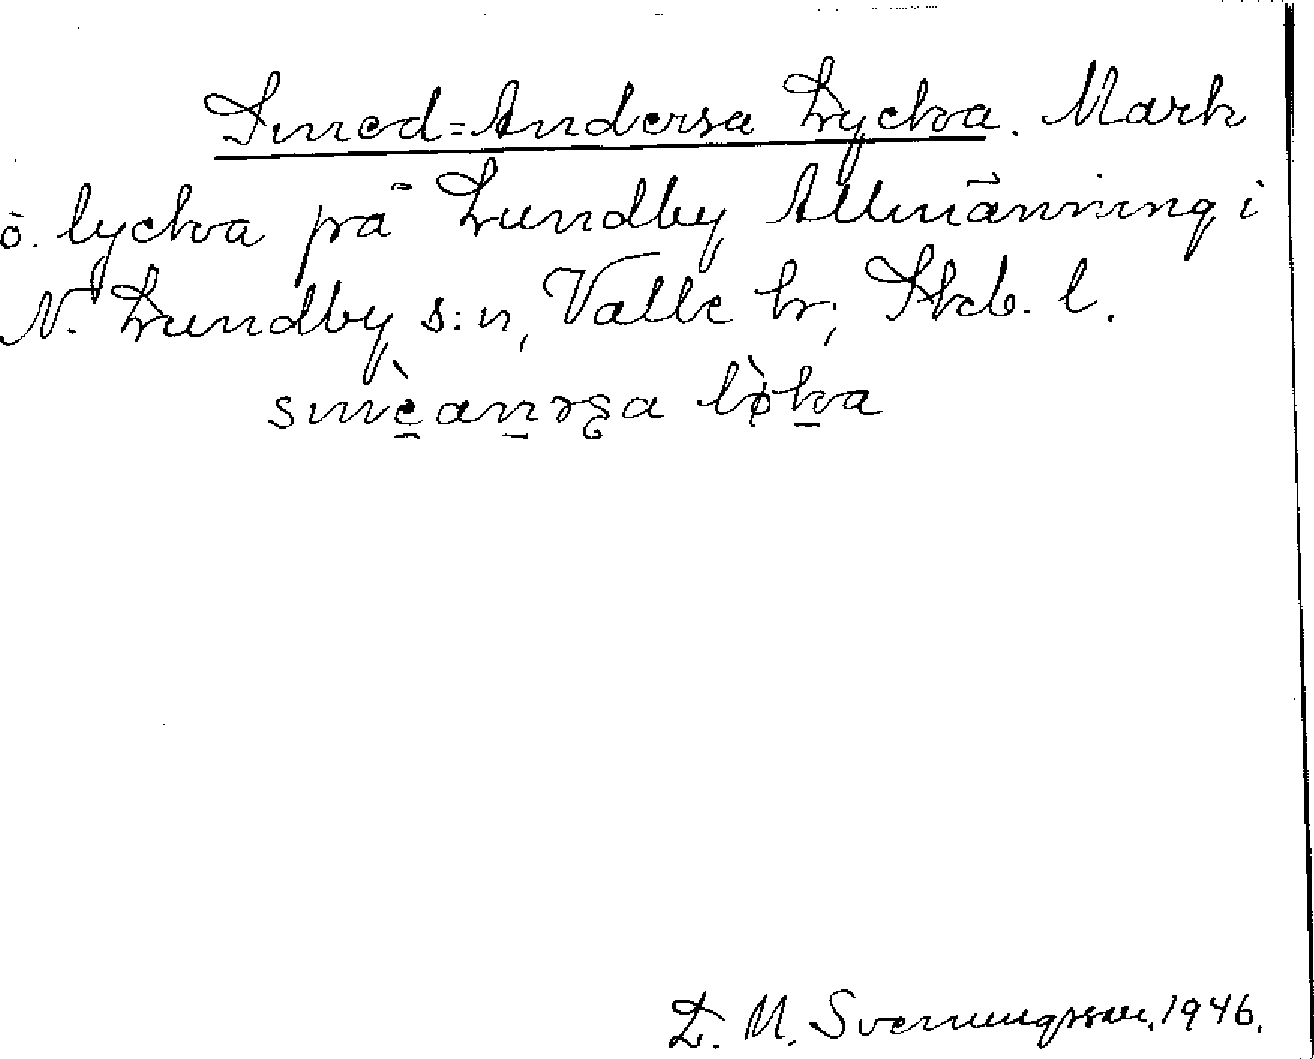 Smed-Andersa Lycka. Mark
o. lycka på Lundby Allmänning i
N. Lundby s:n, Valle hr; Skb. l.
smèanrsa lòka
D. M. Svenungsson, 1946.